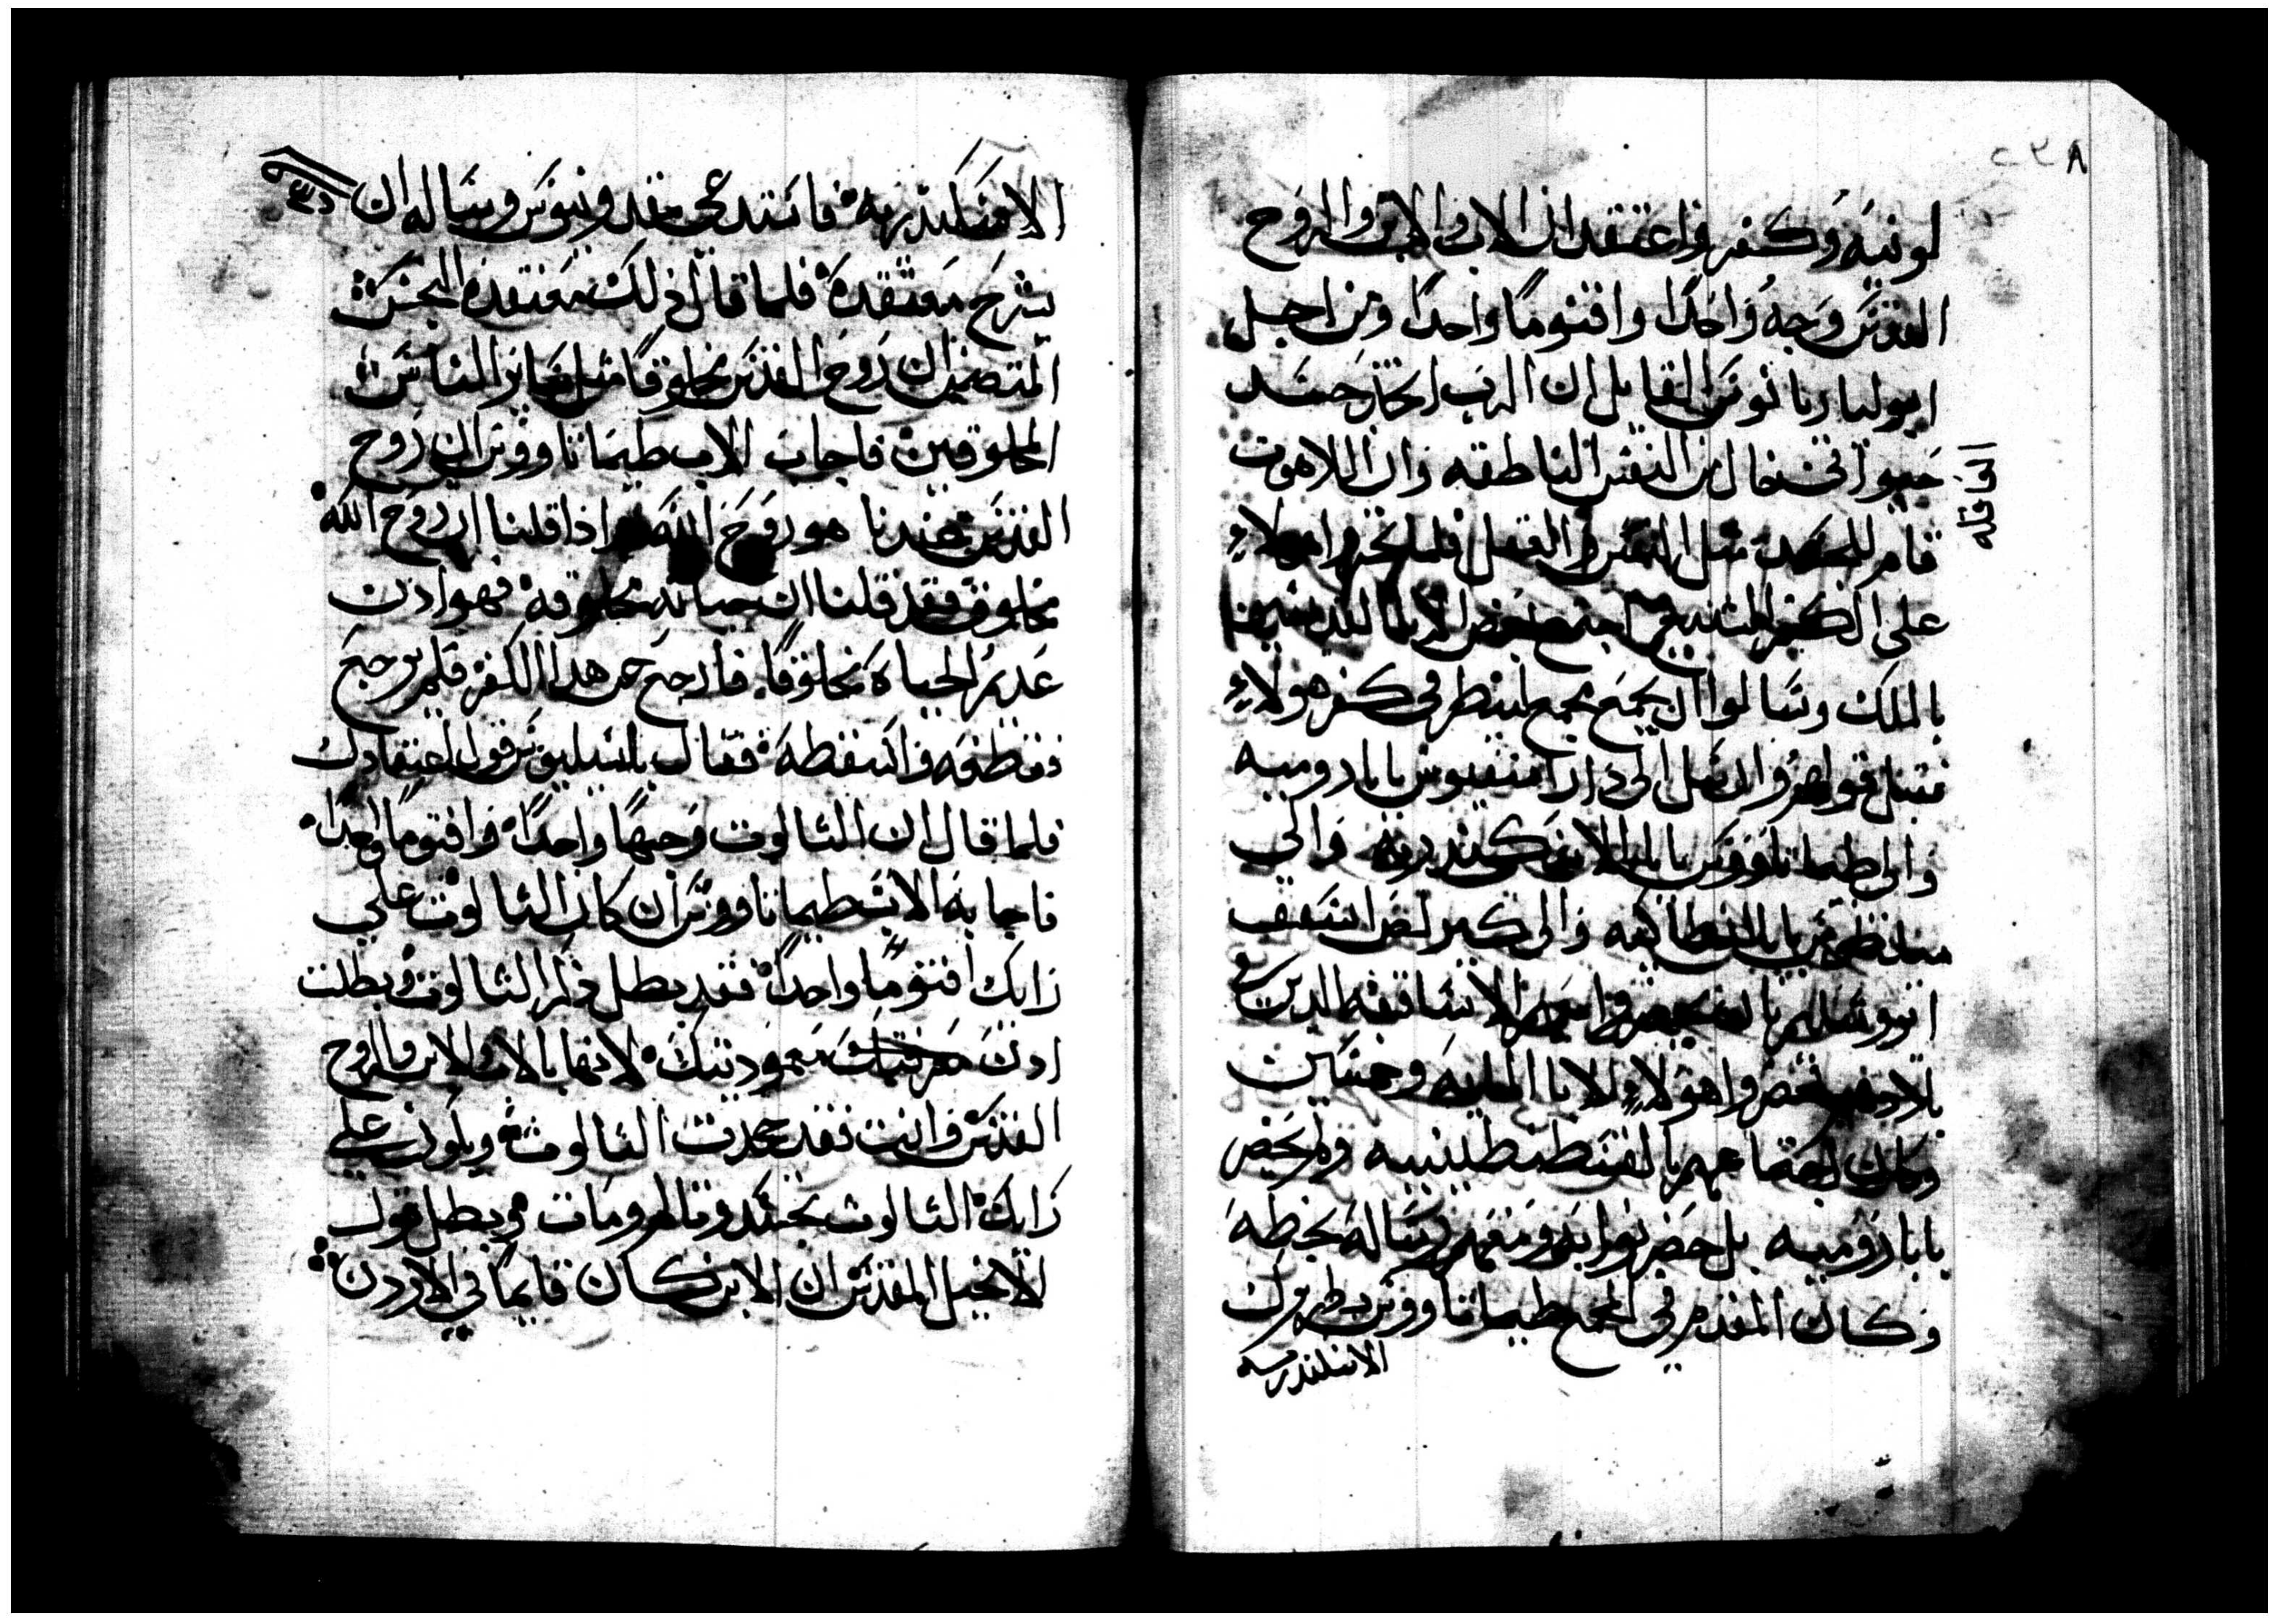 لونيه وكفر واعتقد ان الاب والابن والروح
القدس وجه واحدا واقنوما واحدا ومن اجل
ابوليناريانوس القايل ان الرب اتخذ جسد
حيواني خال من النفس الناطقه وان اللاهوت
قام للجسد مثل النفس والعقل فلما تجروا هولاء
على الكفر اجتمع بعض الابا القديسين
بالملك وسالوا ان يجمع مجمع لينظر في كفر هولاء
فقبل قولهم وارسل الى داماسيوس بابا روميه
والى طيماتاوس بابا الاسكندريه والى
بابا انطاكيه والى كيرلس اسقف
اورشليم بان يحضروا هم والاساقفه الدين
بلادهم فحضروا هولاء الابا المايه وخمسين
وكان اجتماعهم بالقسطنطينيه ولم يحضر
بابا روميه بل حضر نوابه ومعهم رساله بخطه
وكان المقدم في المجمع طيماتاووس بطريرك
الاسكندريه
العاقله
الاسكندريه فاستدعى مقدونيوس وساله ان
يشرح معتقده فلما قال ذلك معتقده النجس
المتضمن ان روح القدس مخلوقا مثل ساير الناس
المخلوقين فاجاب الاب طيماتاووس ان روح
القدس عندنا هو روح الله اذا قلنا ان روح الله
مخلوق فقد قلنا ان حياته مخلوقه فهو ادن
عديم الحياة مخلوقا فارجع عن هدا الكفر فلم يرجع
فقطعه واسقطه فقال لسبليوس قول اعتقادك
فلما قال ان الثالوت وجها واحدا واقنوما واحدا
فاجابه الاب طيماتاووس ان كان الثالوت على
رايك اقنوما واحدا فقد بطل دكر الثالوت وبطلت
ادن معموديتك لانها بالاب والابن والروح
القدس وانت فقد جحدت الثالوت ويكون على
رايك الثالوت تجسد وتالم ومات ويبطل قول
الانجيل المقدس ان الابن كان قايما في الاردن